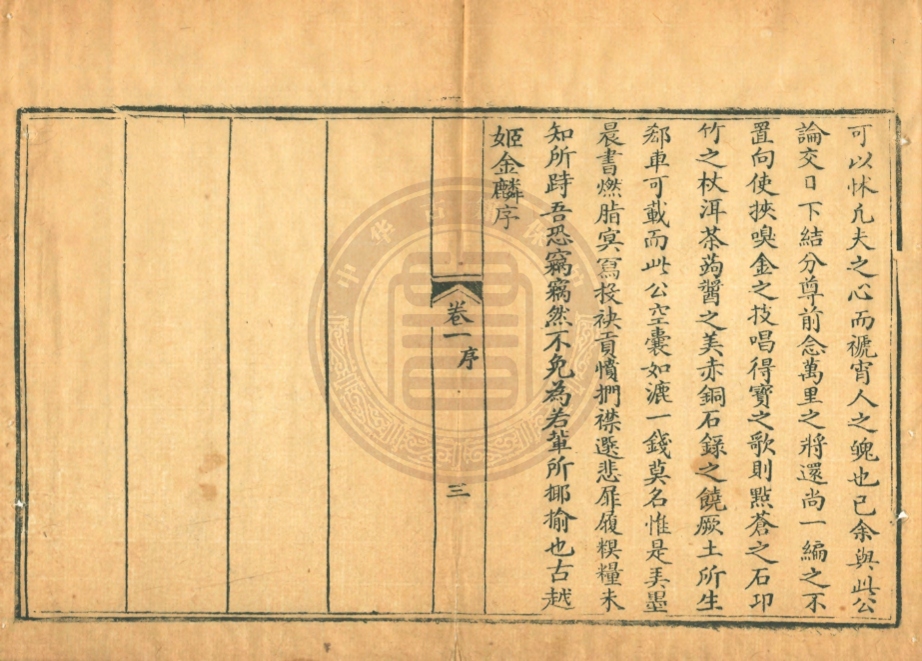 可以怵凡夫之心而褫宵人之魄也已余與此公
論交日下結分尊前念萬里之將還尚一編之不
置向使挾嗅金之技唱得寶之歌則點蒼之石邛
竹之杖洱茶蒟醬之美赤銅石錄之饒厥土所生
郄車可載而此公空囊如漉一錢莫名惟是弄墨
晨書燃脂冥寫投袂貢憤捫襟遝悲屝屨糗糧未
知所跱吾恐竊竊然不免為若輩所揶揄也古越
姬金麟序
卷一 序
三